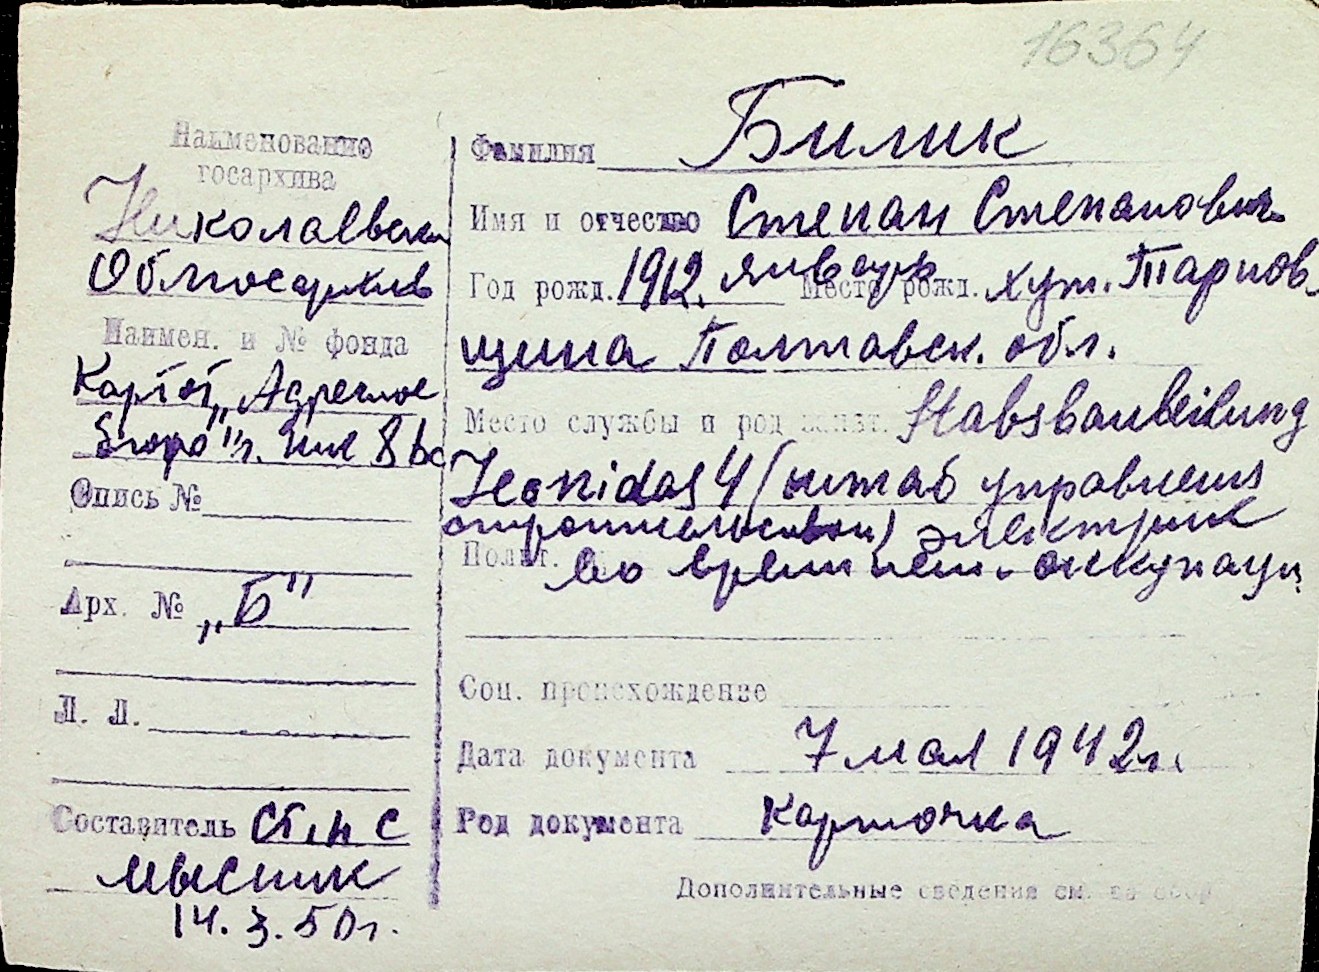 16364
Наименование
госархива
Николаевски
Облгосархив
Наимен. и № фонда
Картот. „Адресное
бюро" г.
Опись №
Арх. № „Б"
Л. Л.
Составитель ст. н с
Мысник
14.3.50г.
Фамилия Билик
Имя и отчество Степан Степанович
Год рожд. 1912. январь Место рожд. хут. Тарнов
щина Полтавск. обл.
Место службы и род занят. Stabsbauleitung
Leonidas 4 (штаб управления
строительством) электрик
Полит.
во врем нем. оккупаци
Соц. происхождение
Дата документа 7 мая 1942г.
Род документа Карточка
Дополнительные сведения см. на обор